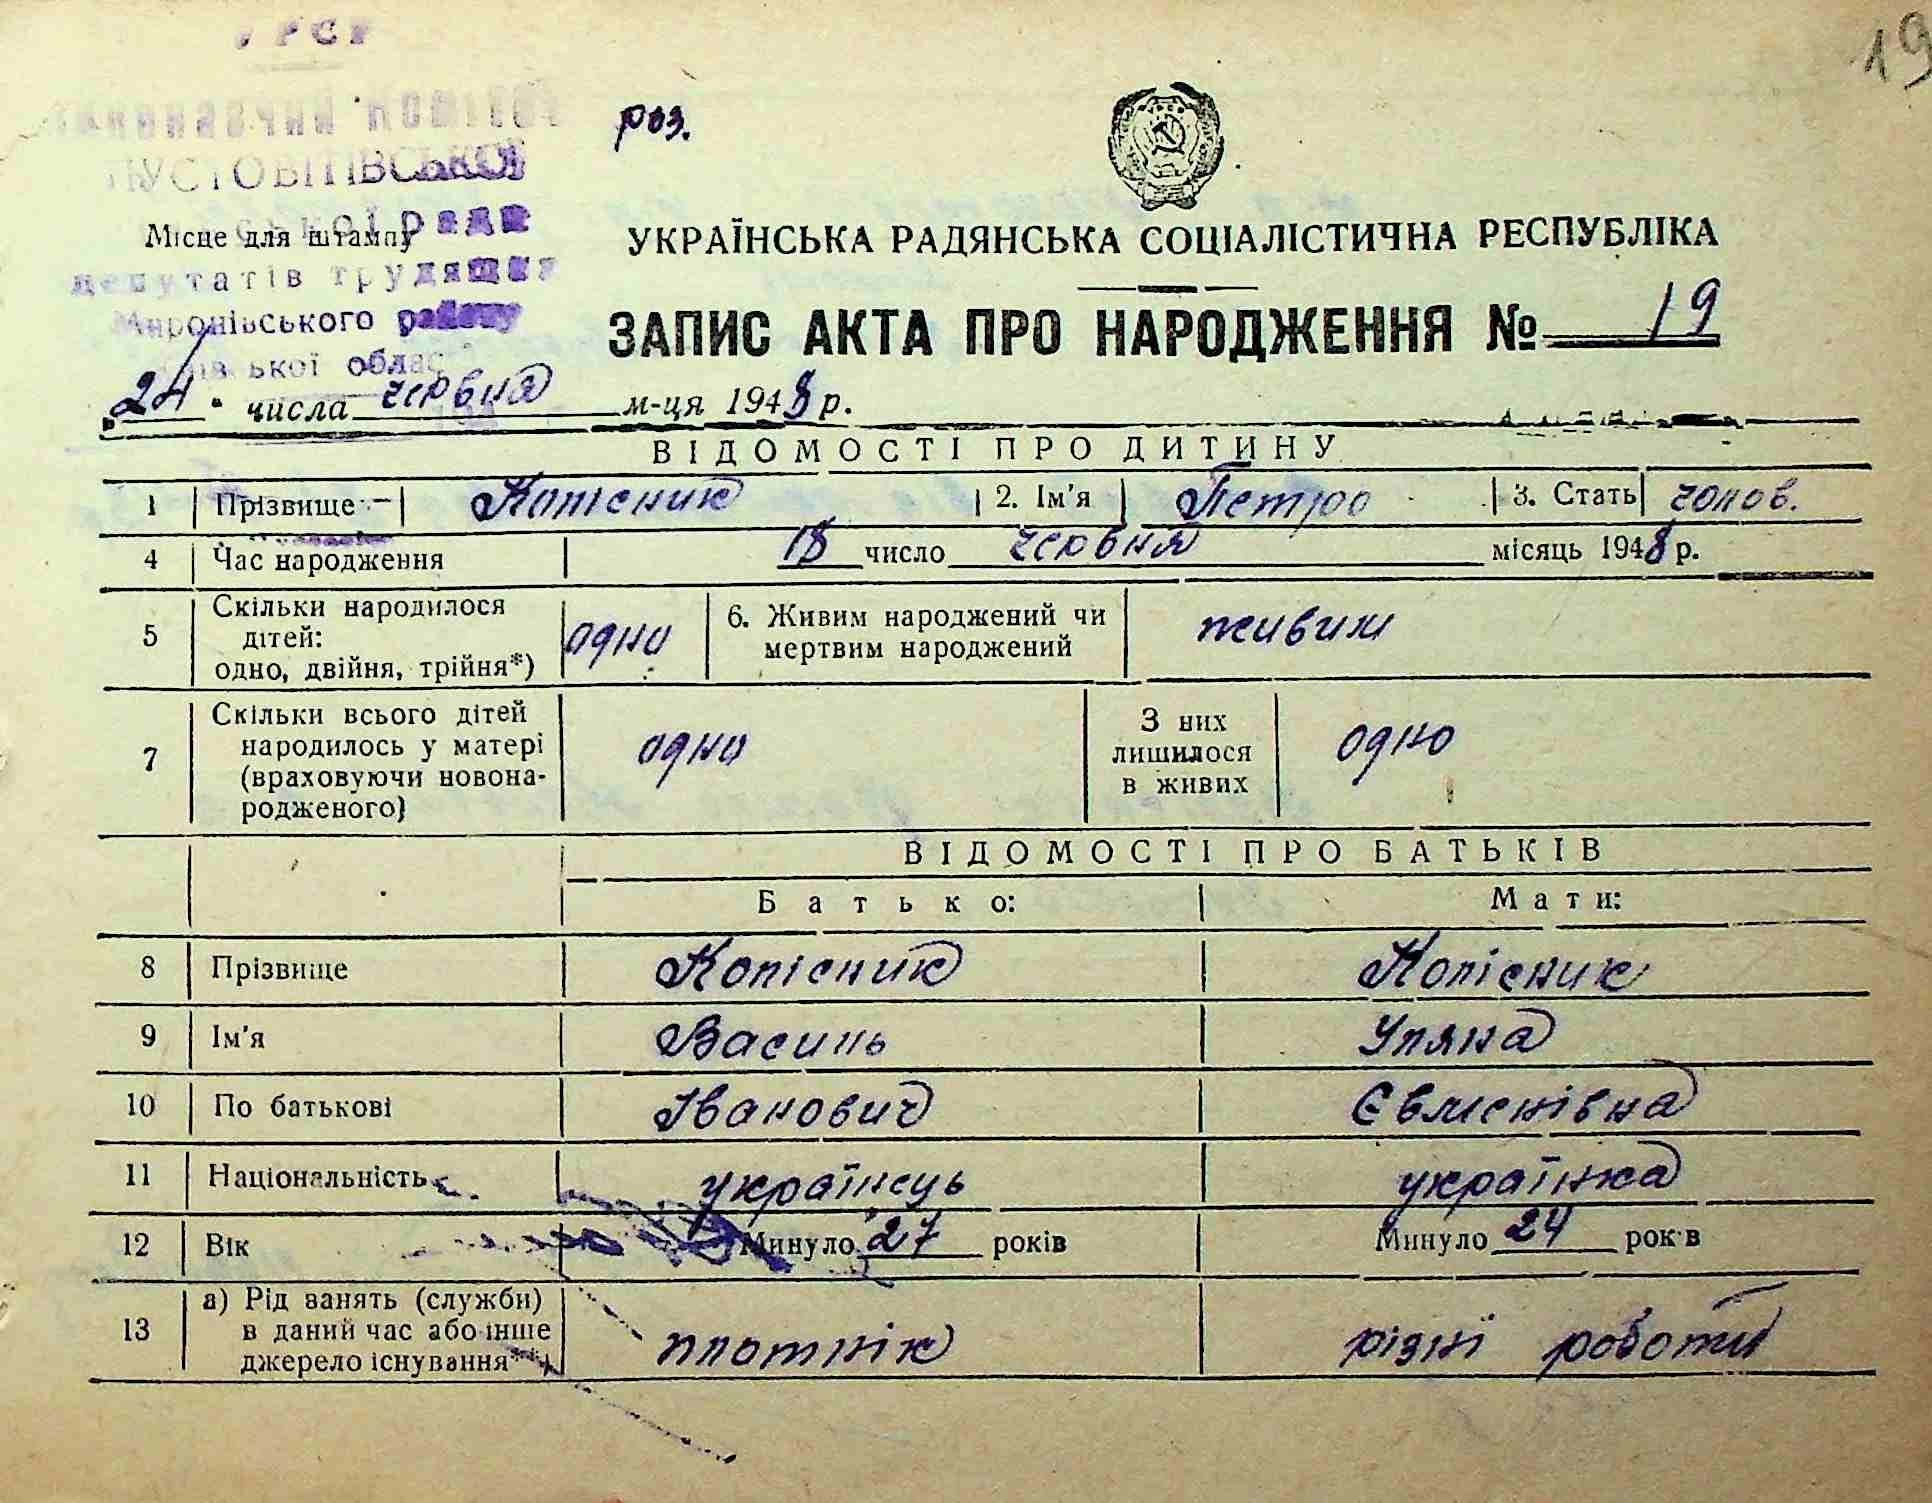 УРСР
19
виконавчий комітет
роз.
ПУСТОВІТІВСЬКОЇ
сільської ради
Місце для штампу
УКРАЇНСЬКА РАДЯНСЬКА СОЦІАЛІСТИЧНА РЕСПУБЛІКА
депутатів трудящих
Миронівського району
ЗАПИС АКТА ПРО НАРОДЖЕННЯ № 19
Київської облас
24 числа червня м-ця 1948 р.
ВІДОМОСТІ ПРО ДИТИНУ
1 Прізвище Колісник 2. Ім'я Петро 3. Стать чолов.
4 Час народження 18 число червня місяць 1948 р.
5 Скільки народилося дітей: одно, двійня, трійня*) одно 6. Живим народжений чи мертвим народжений живим
7 Скільки всього дітей народилось у матері (враховуючи новонародженого) одно З них лишилося в живих одно
ВІДОМОСТІ ПРО БАТЬКІВ
Батько: Мати:
8 Прізвище Колісник Колісник
9 Ім'я Василь Уляна
10 По батькові Іванович Євменівна
11 Національність українець українка
12 Вік Минуло 27 років Минуло 24 рок в
13 а) Рід занять (служби) в даний час або інше джерело існування**) плотнік різні роботи